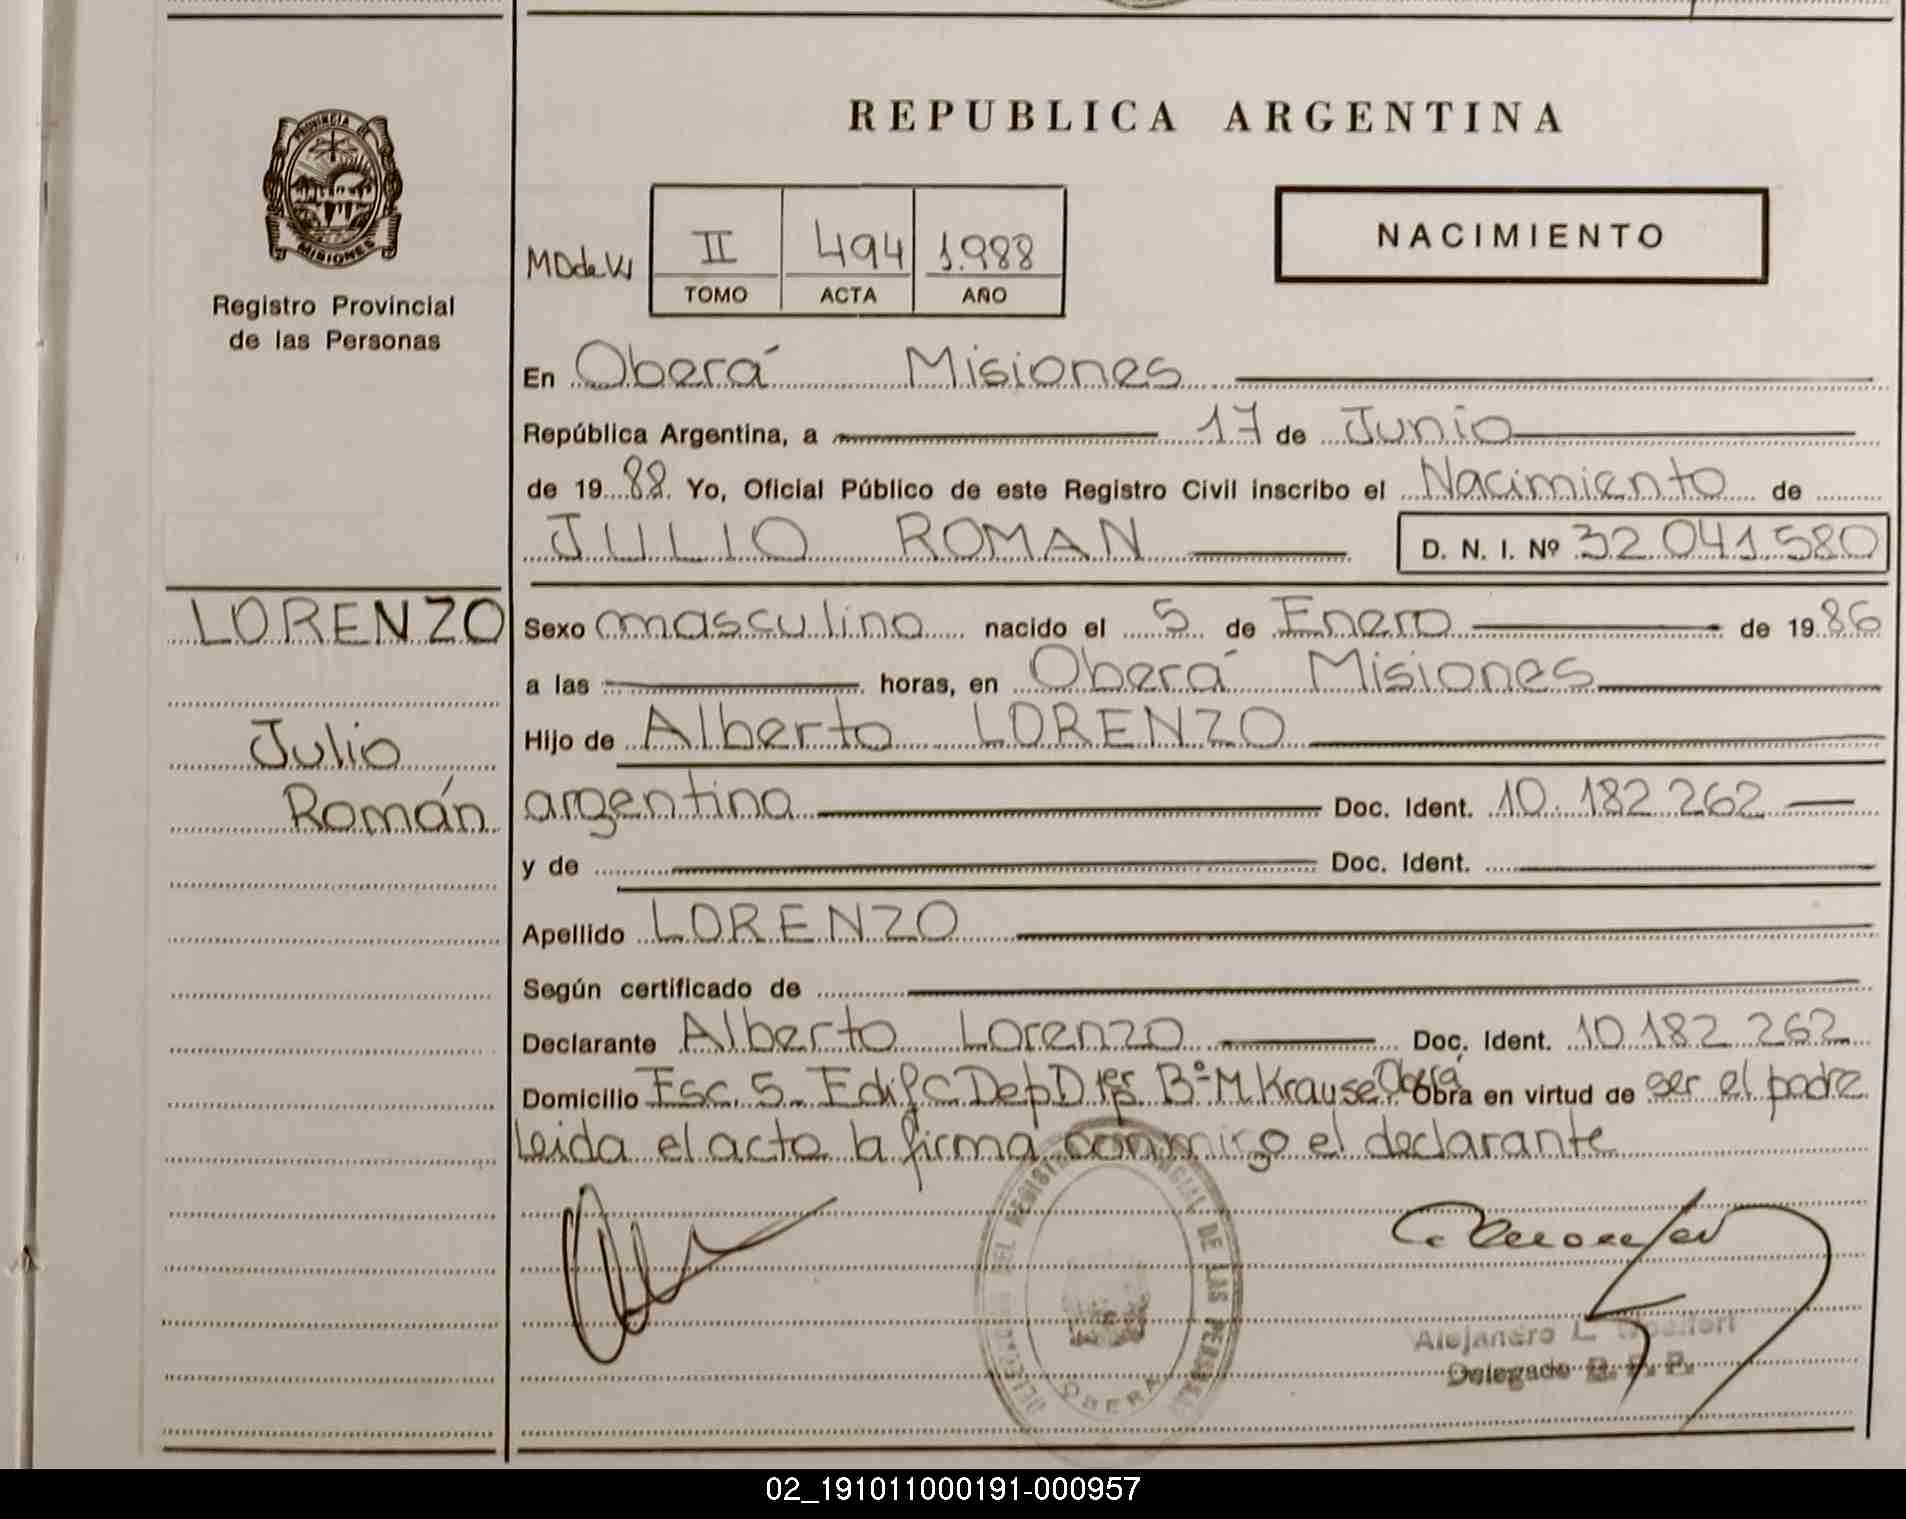 REPUBLICA ARGENTINA
PROVINCIA DE
MISIONES
Registro Provincial
de las Personas
MD de W
II 494 1.988
TOMO ACTA AÑO
NACIMIENTO
En Oberá Misiones
República Argentina, a 17 de Junio
de 1988 Yo, Oficial Público de este Registro Civil inscribo el Nacimiento de
JULIO ROMAN D. N. I. Nº 32.041.580
LORENZO
Julio
Román
Sexo masculino nacido el 5 de Enero de 1986
a las horas, en Oberá Misiones
Hijo de Alberto LORENZO
argentino Doc. Ident. 10.182.262
y de Doc. Ident.
Apellido LORENZO
Según certificado de
Declarante Alberto Lorenzo Doc. Ident. 10.182.262
Domicilio Esc. 5 Edif C Dep D 1er p Bº M Krause Oberá Obra en virtud de ser el padre
Leida el acta la firma conmigo el declarante
DEL REGISTRO PROVINCIAL DE LAS PERSONAS
OBERA
Alejandro L.
Delegado R. P. P.
02_191011000191-000957